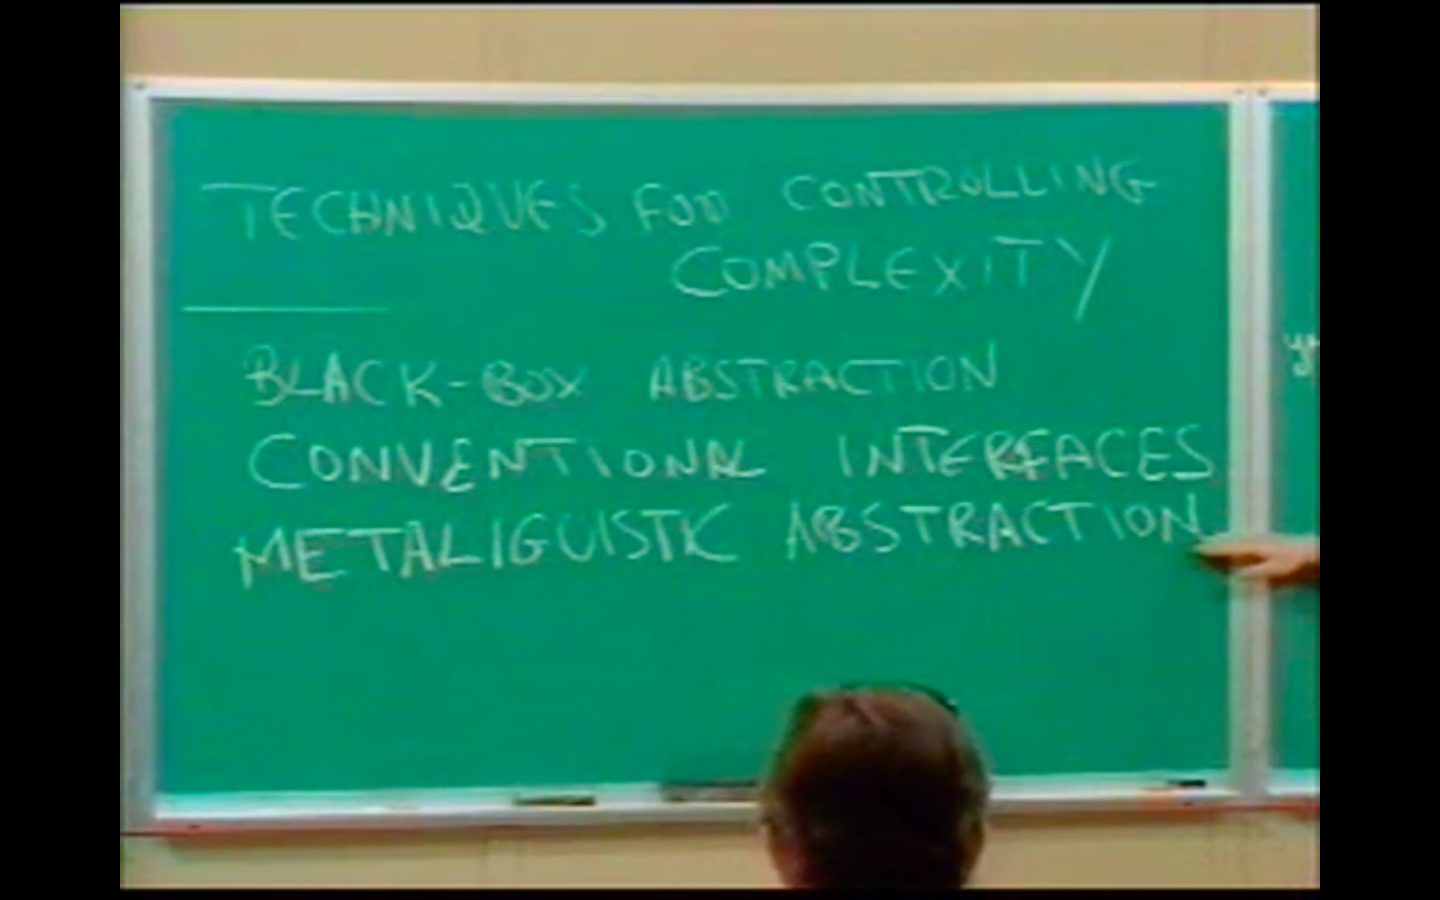 TECHNIQUES FOR CONTROLLING
COMPLEXITY
BLACK-BOX ABSTRACTION
CONVENTIONAL INTERFACES
METALIGUISTIC ABSTRACTION